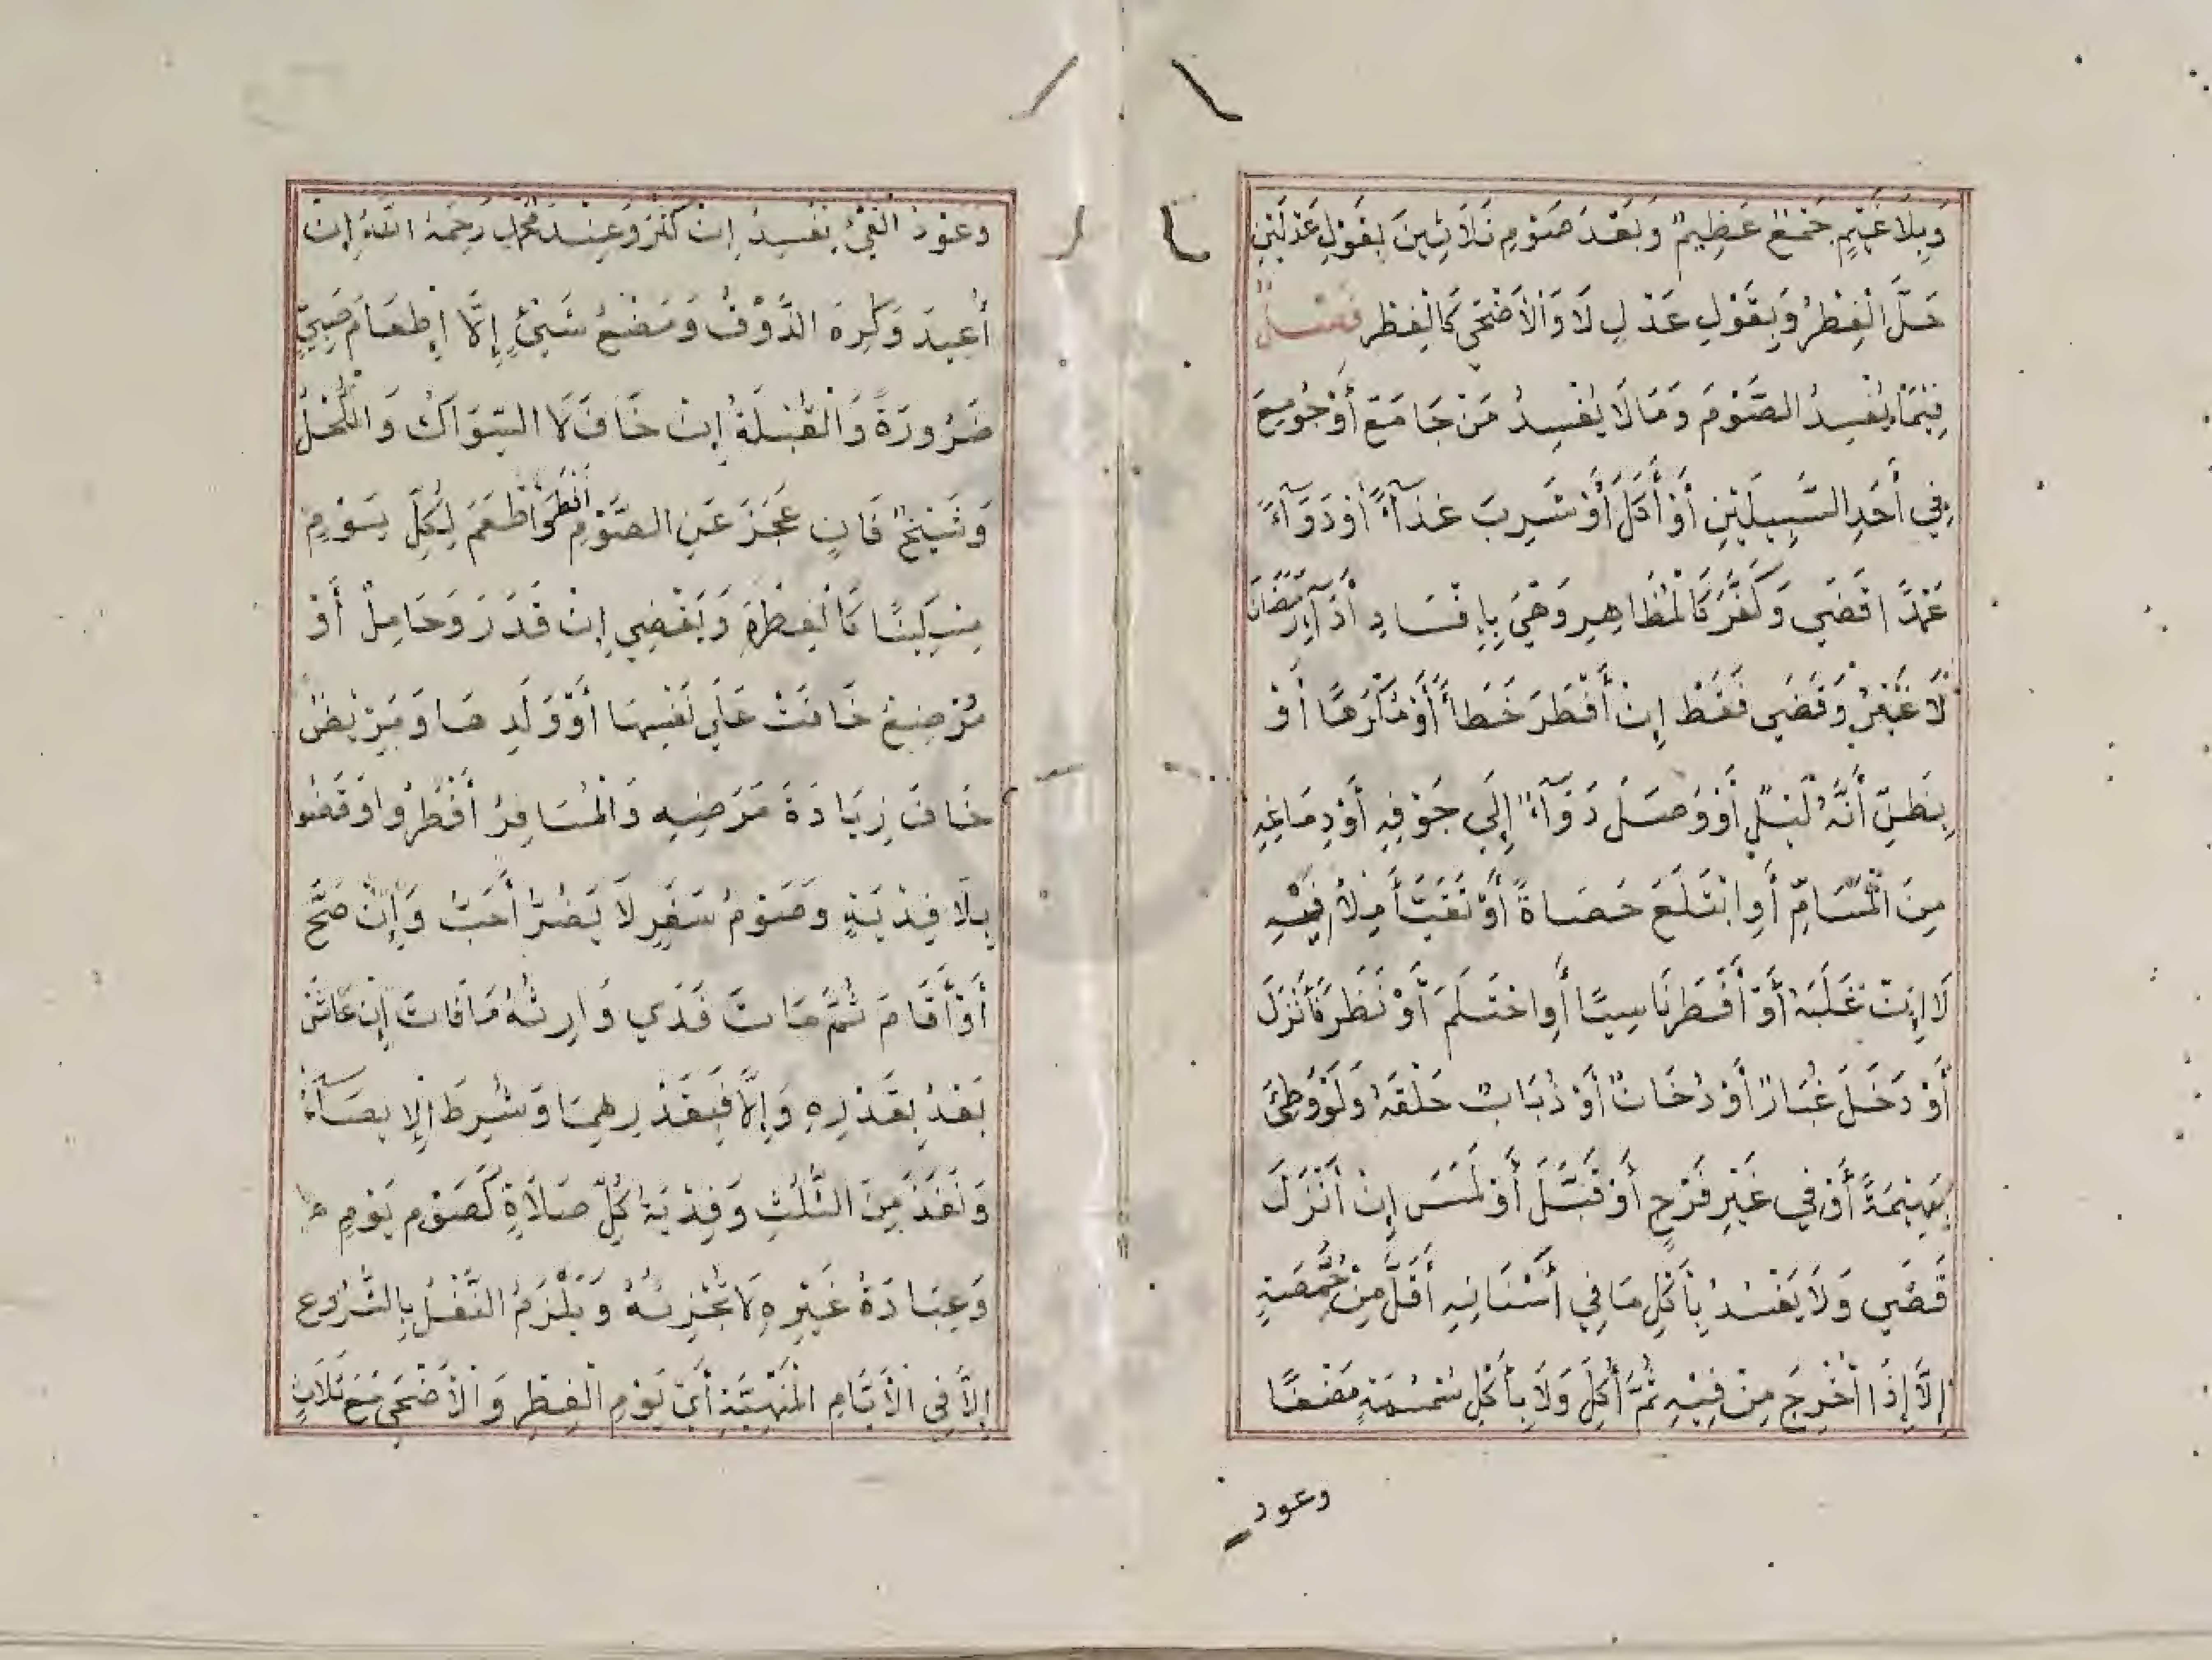 وَبِلَا غَيْمٍ جَمْعٌ عَظِيمٌ وَبَعْدَ صَوْمِ ثَلَاثِينَ بِقَوْلِ عَدْلَيْنِ
حَلَّ الْفِطْرُ وَبِقَوْلِ عَدْلٍ لَا وَالْأَضْحَي كَالْفِطْرِ فصل
فِيمَا يُفْسِدُ الصَّوْمَ وَمَا لَا يُفْسِدُ مَنْ جَامَعَ أَوْ جُومِعَ
فِي أَحَدِ السَّبِيلَيْنِ أَوْ أَكَلَ أَوْ شَرِبَ غِذَآءً أَوْ دَوَآءً
عَمْدًا قَضَي وَكَفَّرَ كَالْمُظَاهِرِ وَهْيَ بِإِفْسَادِ أَدَآءِ رَمَضَانَ
لَا غَيْرُ وَقَضَي فَقَطْ إِنْ أَفْطَرَ خَطَأً أَوْ مُكْرَهًا أَوْ
بِظَنِّ أَنَّهُ لَيْلٌ أَوْ وَصَلَ دَوَآءٌ إِلَي جَوْفِهِ أَوْ دِمَاغِهِ
مِنَ الْمَسَامِّ أَوِ ابْتَلَعَ حَصَاةً أَوْ تَقَيَّأَ مِلْأَ فِيْهِ
لَا إِنْ غَلَبَهُ أَوْ أَفْطَرَ نَاسِيًا أَوِ احْتَلَمَ أَوْ نَظَرَ فَأَنْزَلَ
أَوْ دَخَلَ غُبَارٌ أَوْ دُخَانٌ أَوْ ذُبَابٌ حَلْقَهُ وَلَوْ وَطِئَ
بَهِيْمَةً أَوْ فِي غَيْرِ فَرْجٍ أَوْ قَبَّلَ أَوْ لَمَسَ إِنْ أَنْزَلَ
قَضَي وَلَا يَفْسُدُ بِأَكْلِ مَا فِي أَسْنَانِهِ أَقَلَّ مِنْ حِمَّصَةٍ
إِلَّا إِذَا أُخْرِجَ مِنْ فِيْهِ ثُمَّ أُكِلَ وَلَا بِأَكْلِ سُمْسُمَةٍ مَضْغًا
وعود
وَعَوْدُ الْقَيْءِ يُفْسِدُ إِنْ كَثُرَ وَعِنْدَ مُحَمَّدٍ رَحِمَهُ اللّٰهُ إِنْ
أُعِيدَ وَكُرِهَ الذَّوْقُ وَمَضْغُ شَيْئٍ إِلَّا إِطْعَامَ صَبِيٍّ
ضَرُورَةً وَالْقُبْلَةُ إِنْ خَافَ لَا السِّوَاكُ وَالْكُحْلُ
وَشَيْخٌ فَانٍ عَجَزَ عَنِ الصَّوْمِ أَفْطَرَ وَأَطْعَمَ لِكُلِّ يَوْمٍ
مِسْكِينًا كَالْفِطْرَةِ وَيَقْضِي إِنْ قَدَرَ وَحَامِلٌ أَوْ
مُرْضِعٌ خَافَتْ عَلَي نَفْسِهَا أَوْ وَلَدِهَا وَمَرِيْضٌ
خَافَ زِيَادَةَ مَرَضِهِ وَالْمُسَافِرُ أَفْطَرُوا وَقَضَوا
بِلَا فِدْيَةٍ وَصَوْمُ سَفَرٍ لَا يَضُرُّ أَحَبُّ وَإِنْ صَحَّ
أَوْ أَقَامَ ثُمَّ مَاتَ فَدَي وَارِثُهُ مَا فَاتَ إِنْ عَاشَ
بَعْدُ بِقَدْرِهِ وَإِلَّا فَبِقَدْرِهِمَا وَشُرِطَ الْإِيصَآءُ
وَنَفَذَ مِنَ الثُّلُثِ وَفِدْيَةُ كُلِّ صَلَاةٍ كَصَوْمِ يَوْمٍ
وَعِبَادَةُ غَيْرِهِ لَا تُجْزِئُهُ وَيَلْزَمُ النَّفْلُ بِالشُّرُوعِ
إِلَّا فِي الْأَيَّامِ الْمَنْهِيَّةِ أَيْ يَوْمِ الْفِطْرِ وَالْأَضْحَي مَعَ ثَلَاثٍ